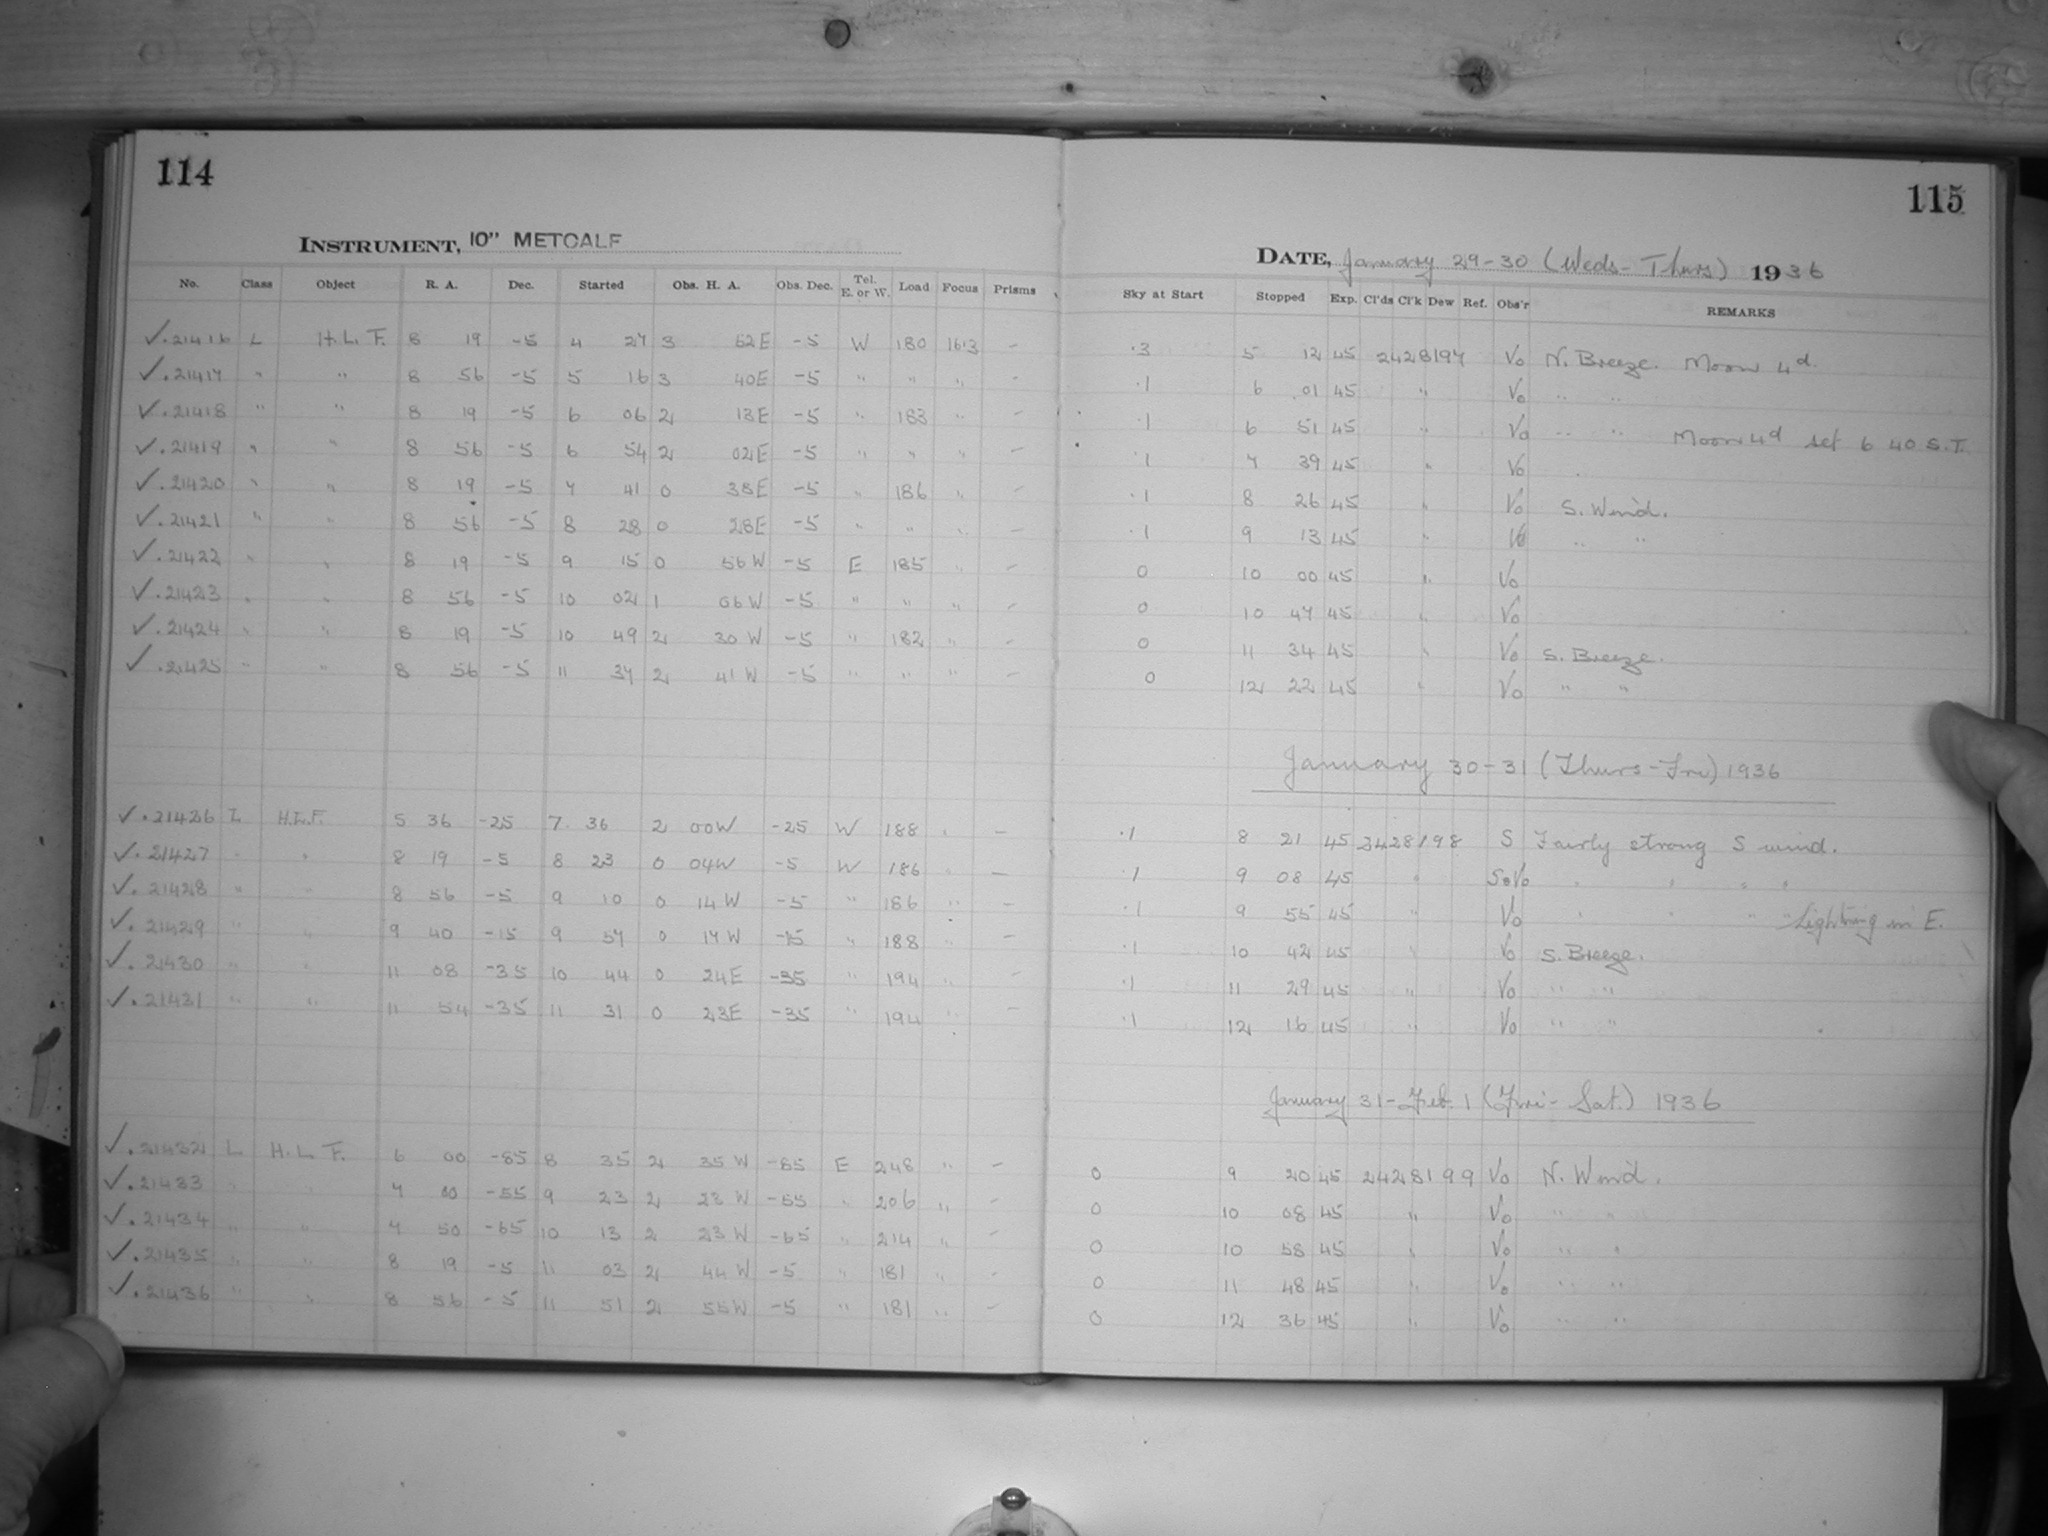 114
115
INSTRUMENT, 10" METCALF
DATE, January 29-30 (Weds-Thurs) 1936
No. Class Object R. A. Dec. Started Obs. H. A. Obs. Dec. Tel. E. or W. Load Focus Prisms Sky at Start Stopped Exp. Cl'ds Cl'k Dew Ref. Obs'r REMARKS
✓.21416 L H.L.F. 8 19 -5 4 27 3 52E -5 W 180 1613 - .3 5 12 45 2428197 Vo N. Breeze. Moon 4d.
✓.21417 " " 8 56 -5 5 16 3 40E -5 " " " - .1 6 01 45 " Vo " "
✓.21418 " " 8 19 -5 6 06 2 13E -5 " 183 " - .1 6 51 45 " Vo " " Moon 4d set 6 40 S.T.
✓.21419 " " 8 56 -5 6 54 2 02E -5 " " " - .1 7 39 45 " Vo
✓.21420 " " 8 19 -5 7 41 0 38E -5 " 186 " - .1 8 26 45 " Vo S. Wind.
✓.21421 " " 8 56 -5 8 28 0 28E -5 " " " - .1 9 13 45 " Vo " "
✓.21422 " " 8 19 -5 9 15 0 56W -5 E 185 " - 0 10 00 45 " Vo
✓.21423 " " 8 56 -5 10 02 1 06W -5 " " " - 0 10 47 45 " Vo
✓.21424 " " 8 19 -5 10 49 2 30W -5 " 182 " - 0 11 34 45 " Vo S. Breeze.
✓.21425 " " 8 56 -5 11 37 2 41W -5 " " " - 0 12 22 45 " Vo " "
January 30-31 (Thurs-Fri) 1936
✓.21426 L H.L.F. 5 36 -25 7 36 2 00W -25 W 188 " - .1 8 21 45 3428198 S Fairly strong S wind.
✓.21427 " " 8 19 -5 8 23 0 04W -5 W 186 " - .1 9 08 45 " S&Vo " " " "
✓.21428 " " 8 56 -5 9 10 0 14W -5 " 186 " - .1 9 55 45 " Vo " " " " Lightning in E.
✓.21429 " " 9 40 -15 9 57 0 17W -15 " 188 " - .1 10 42 45 " Vo S. Breeze.
✓.21430 " " 11 08 -35 10 44 0 24E -35 " 194 " - .1 11 29 45 " Vo " "
✓.21431 " " 11 54 -35 11 31 0 23E -35 " 194 " - .1 12 16 45 " Vo " "
January 31-Feb. 1 (Fri-Sat.) 1936
✓.21432 L H.L.F. 6 00 -85 8 35 2 35W -85 E 248 " - 0 9 20 45 2428199 Vo N. Wind.
✓.21433 " " 7 00 -55 9 23 2 23W -55 " 206 " - 0 10 08 45 " Vo " "
✓.21434 " " 7 50 -65 10 13 2 23W -65 " 214 " - 0 10 58 45 " Vo " "
✓.21435 " " 8 19 -5 11 03 2 44W -5 " 181 " - 0 11 48 45 " Vo " "
✓.21436 " " 8 56 -5 11 51 2 55W -5 " 181 " - 0 12 36 45 " Vo " "